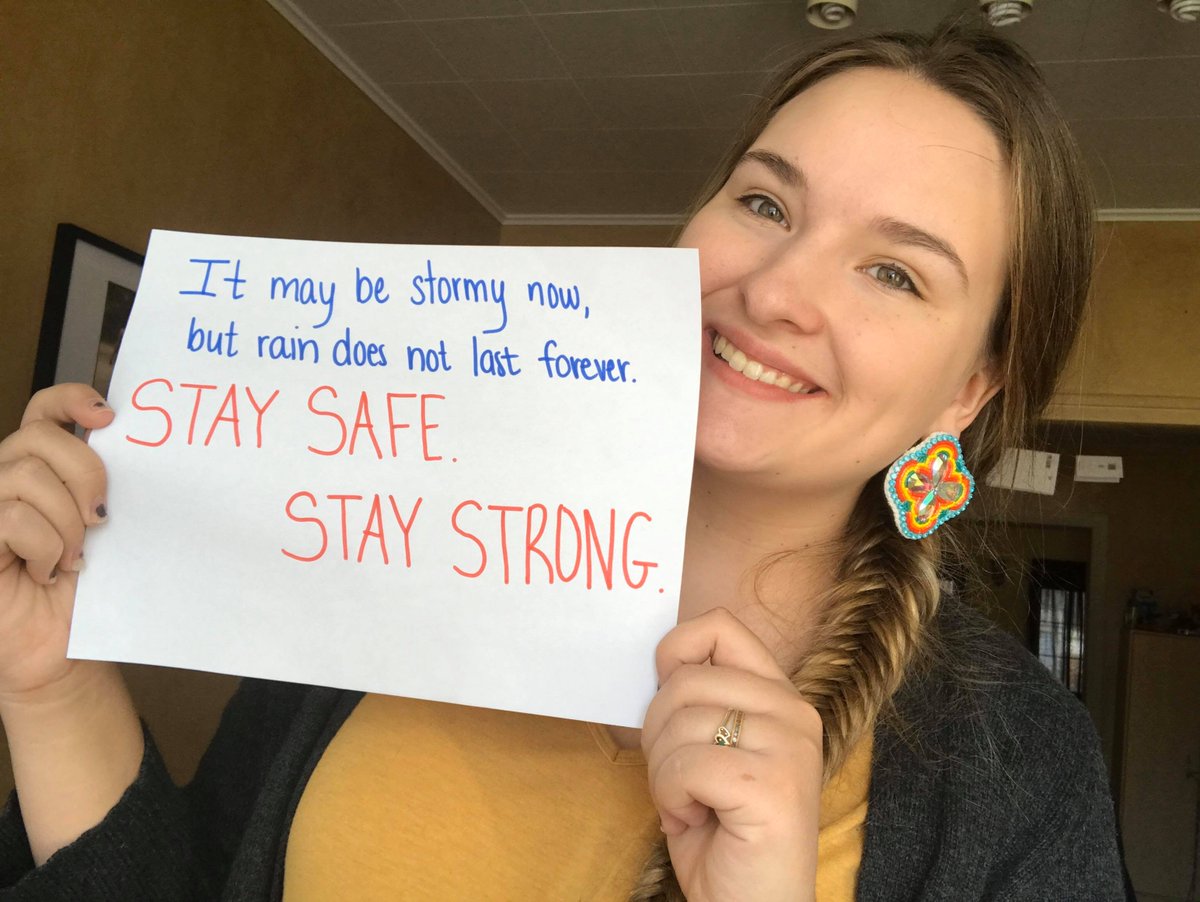 It may be stormy now,
but rain does not last forever.
STAY SAFE.
STAY STRONG.